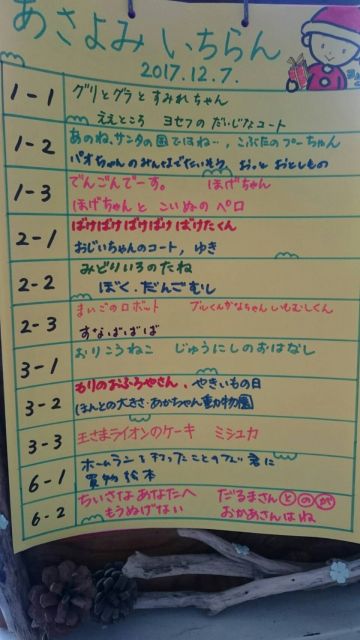 あさよみ いちらん
2017.12.7.
1-1 グリとグラとすみれちゃん
ええところ ヨセフのだいじなコート
1-2 あのね、サンタの国ではね…、こぶたのプーちゃん
パオちゃんのみんなでたいそう、おっと おとしもの
1-3 でんごんでーす。 ほげちゃん
ほげちゃんと こいぬの ペロ
2-1 ばけばけばけばけ ばけたくん
おじいちゃんのコート, ゆき
2-2 みどりいろのたね
ぼく、だんごむし
2-3 まいごのロボット ブルくんかなちゃん いもむしくん
すなばばば
3-1 おりこうねこ じゅうにしのおはなし
3-2 もりのおふろやさん、やきいもの日
ほんとの大きさ・あかちゃん動物園
3-3 王さまライオンのケーキ ミシュカ
6-1 ホームランを打ったことのない君に
買物絵本
6-2 ちいさなあなたへ だるまさん と の が
もうぬげない おかあさんはね